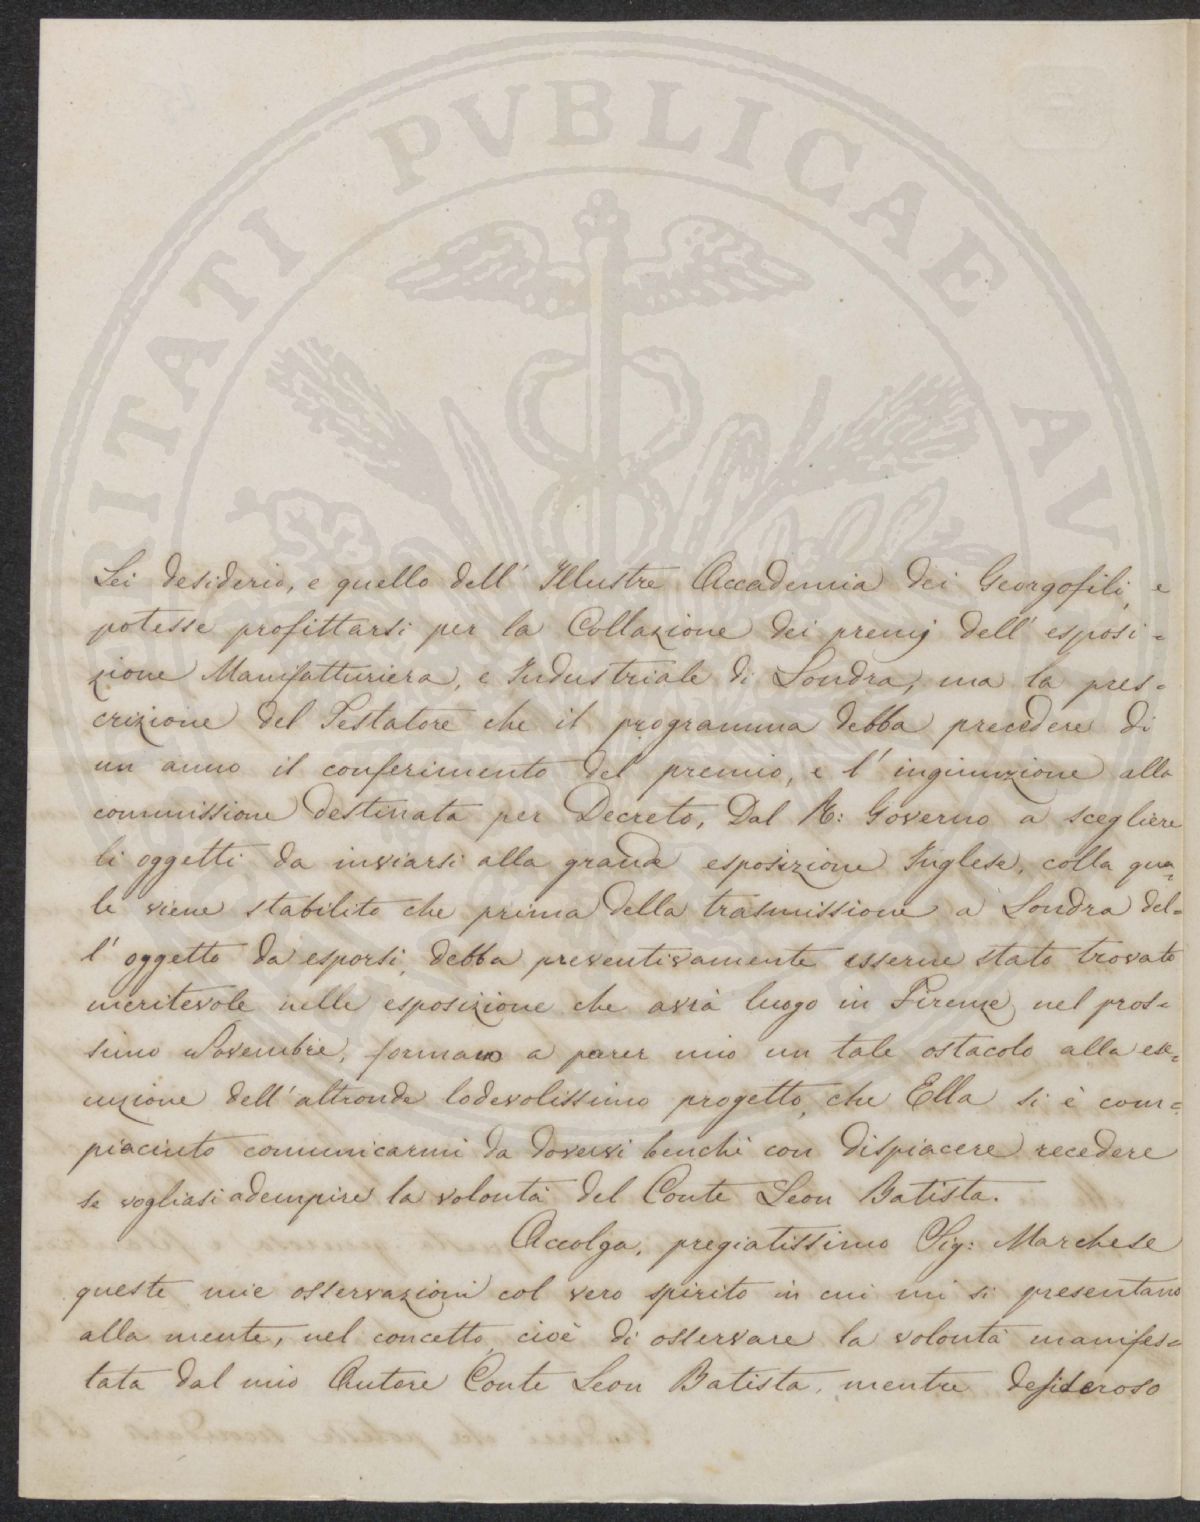 PROSPERITATI PVBLICAE AV
Lei desiderio, e quello dell' Illustre Accademia dei Georgofili, e
potesse profittarsi per la Collazione dei premj dell' esposi=
zione Manifatturiera, e Industriale di Londra, ma la pres=
crizione del Testatore che il programma debba precedere di
un anno il conferimento del premio, e l' ingiunzione alla
commissione destinata per Decreto, Dal R: Governo a scegliere
li oggetti da inviarsi alla grande esposizione Inglese, colla qua=
le viene stabilito che prima della trasmissione a Londra del=
l' oggetto da esporsi, debba preventivamente esserne stato trovato
meritevole nelle esposizione che avrà luogo in Firenze nel pros=
simo Novembre, formano a parer mio un tale ostacolo alla ese=
cuzione dell' altronde lodevolissimo progetto, che Ella si è com=
piaciuto comunicarmi da doversi benchè con dispiacere recedere
se vogliasi adempire la volontà del Conte Leon Batista.
Accolga, pregiatissimo Sig: Marchese
queste mie osservazioni col vero spirito in cui mi si presentano
alla mente, nel concetto cioè di osservare la volontà manifes=
tata dal mio Autore Conte Leon Batista, mentre desideroso